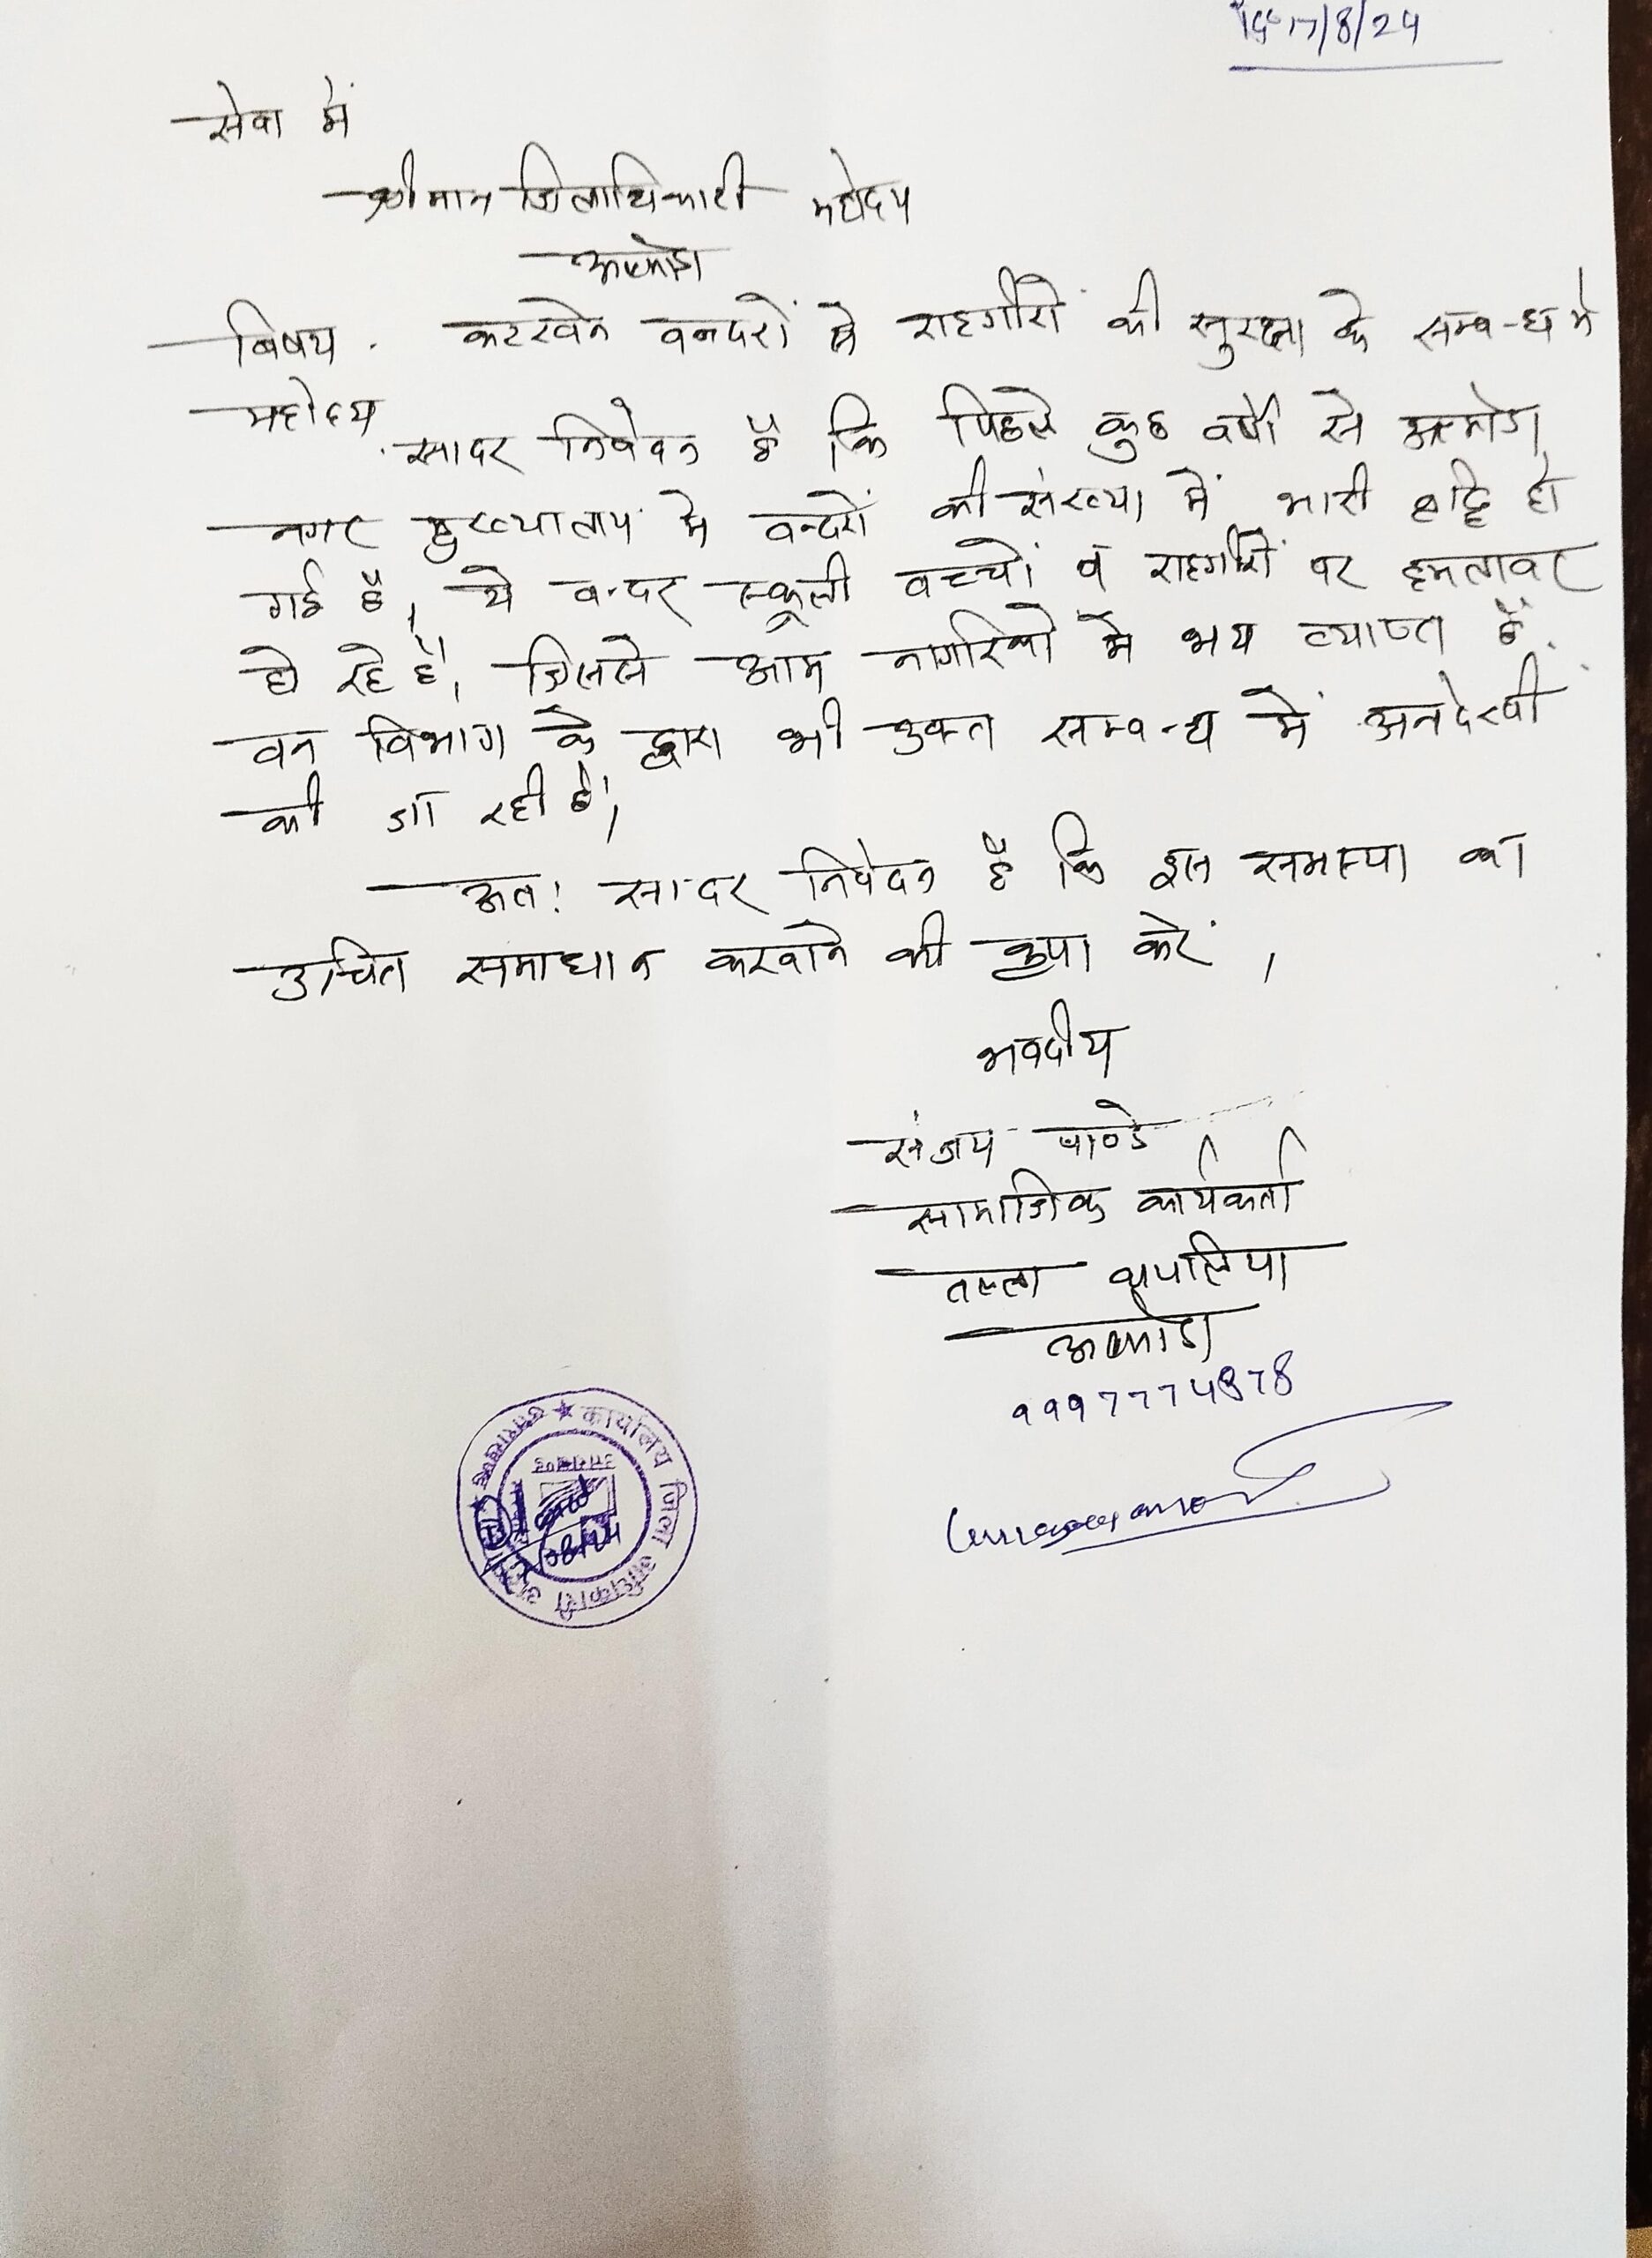 17/8/24
सेवा में
श्रीमान जिलाधिकारी महोदय
अल्मोड़ा
विषय . कटखने बन्दरों से राहगीरों की सुरक्षा के सम्बन्ध में
महोदय
सादर निवेदन है कि पिछले कुछ वर्षों से अल्मोड़ा
नगर मुख्यालय में बन्दरों की संख्या में भारी वृद्धि हो
गई है, ये बन्दर स्कूली बच्चों व राहगीरों पर हमलावर
हो रहे हैं, जिससे आम नागरिकों में भय व्याप्त है.
वन विभाग के द्वारा भी उक्त सम्बन्ध में अनदेखी
की जा रही है,
अतः सादर निवेदन है कि इस समस्या का
उचित समाधान करवाने की कृपा करें ,
भवदीय
संजय पाण्डे
सामाजिक कार्यकर्ता
तल्ला थपलिया
अल्मोड़ा
9997774878
कार्यालय जिला अधिकारी
उत्तराखण्ड
उत्तराखण्ड